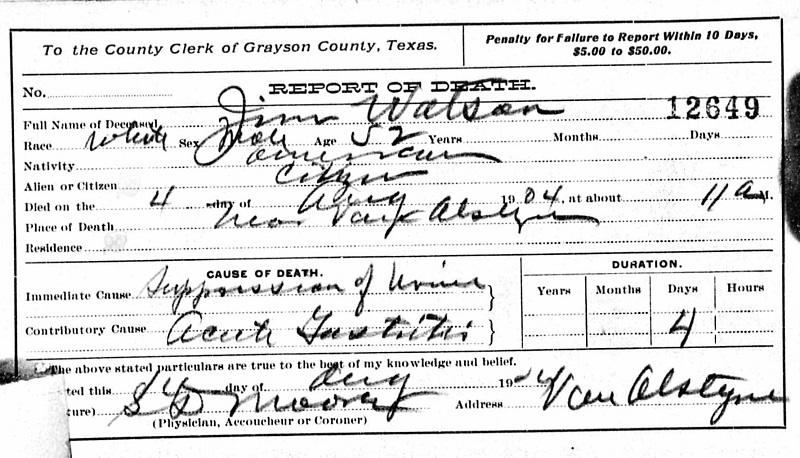 To the County Clerk of Grayson County, Texas.
Penalty for Failure to Report Within 10 Days,
$5.00 to $50.00.
No. REPORT OF DEATH.
Full Name of Deceased Jim Watson 12649
Race White Sex Male Age 52 Years Months Days
Nativity American
Alien or Citizen Citizen
Died on the 4 day of Aug 1904, at about 11 a M.
Place of Death Near Van Alstyne
Residence
CAUSE OF DEATH.
Immediate Cause Suppression of Urine
Contributory Cause Acute Gastritis
DURATION.
Years Months Days Hours
4
The above stated particulars are true to the best of my knowledge and belief.
ted this day of Aug 1904
ure) S D Moore Address Van Alstyne
(Physician, Accoucheur or Coroner)